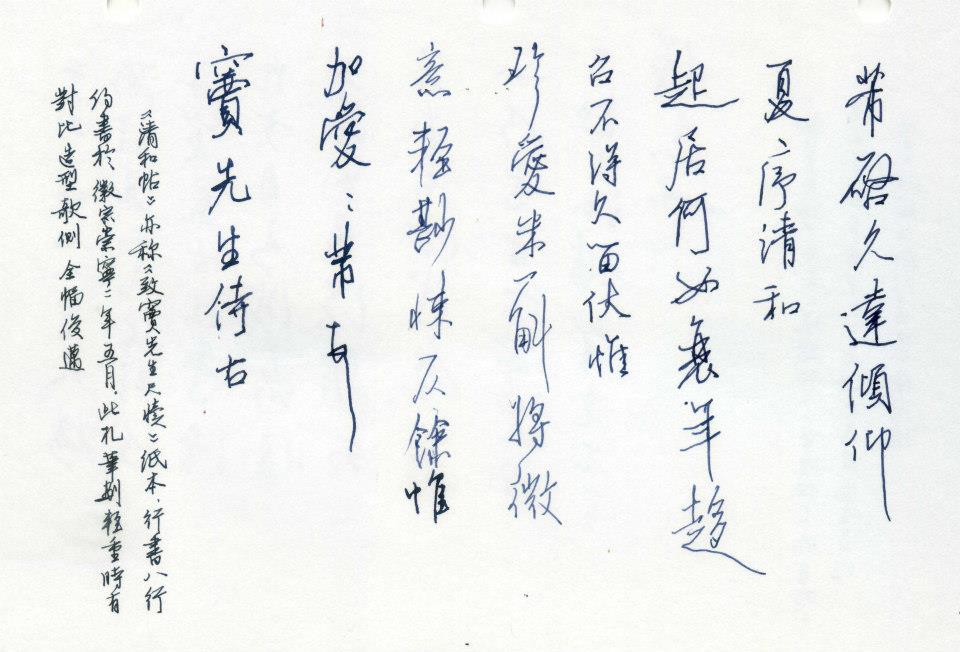 芾啓久違傾仰
夏序清和
起居何如衰年趨
召不得久留伏惟
珍愛米一斛將微
意輕尠悚仄餘惟
加愛〻芾頓首
竇先生侍右
《清和帖》亦称《致竇先生尺牘》紙本、行書八行
约書於徽宗崇寧二年五月、此札筆劃輕重時有
對比造型欹側全幅俊邁